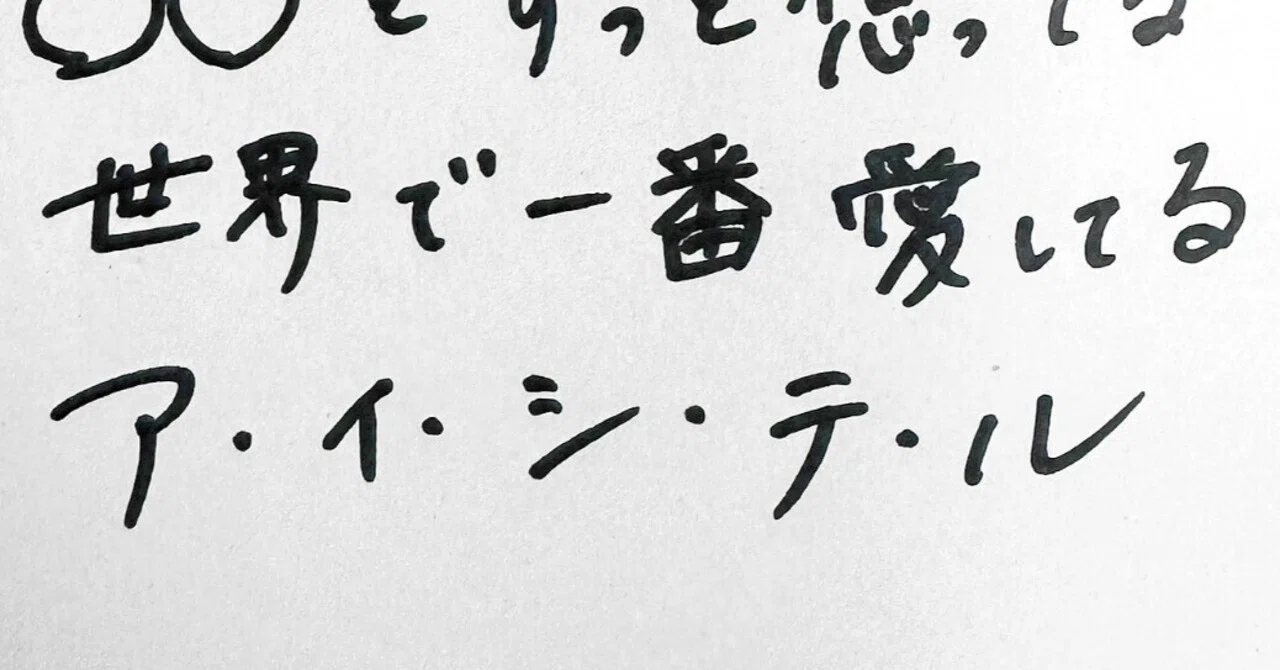 〇〇をずっと想ってる
世界で一番愛してる
ア・イ・シ・テ・ル